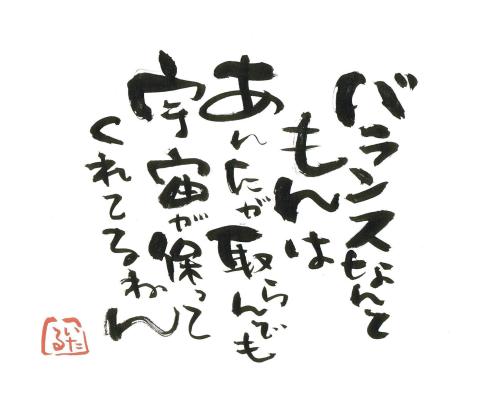 バランスなんて
もんは
あんたが取らんでも
宇宙が保って
くれてるねん
いたる